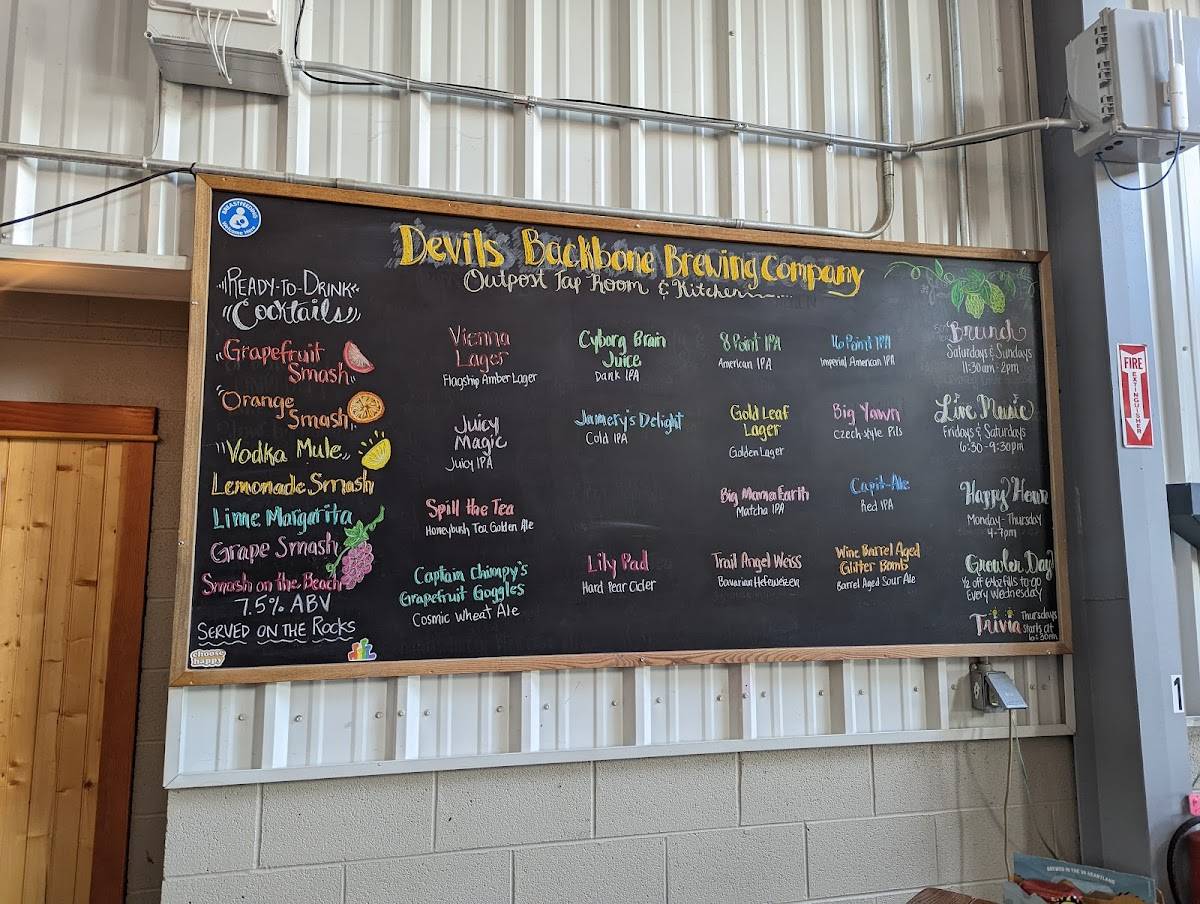 BREASTFEEDING
Welcome Here
Devils Backbone Brewing Company
Outpost Tap Room & Kitchen
Ready-to-Drink
Cocktails
Grapefruit
Smash
Orange
Smash
Vodka Mule
Lemonade Smash
Lime Margarita
Grape Smash
Smash on the Beach
7.5% ABV
Served on the Rocks
choose
happy
Vienna
Lager
Flagship Amber Lager
Juicy
Magic
Juicy IPA
Spill the Tea
Honeybush Tea Golden Ale
Captain Chimpy's
Grapefruit Goggles
Cosmic Wheat Ale
Cyborg Brain
Juice
Dark IPA
Jamery's Delight
Cold IPA
Lily Pad
Hard Pear Cider
8 Point IPA
American IPA
Gold Leaf
Lager
Golden Lager
Big Mama Earth
Matcha IPA
Trail Angel Weiss
Bavarian Hefeweizen
16 Point IPA
Imperial American IPA
Big Yawn
Czech-style Pils
Capit-Ale
Red IPA
Wine Barrel Aged
Glitter Bomb
Barrel Aged Sour Ale
Brunch
Saturdays & Sundays
11:30am-2pm
Live Music
Fridays & Saturdays
6:30-9:30pm
Happy Hour
Monday-Thursday
4-7pm
Growler Day
1/2 off 64oz fills to go
Every Wednesday
Trivia Thursdays
Starts at
6:30pm
FIRE
EXTINGUISHER
1